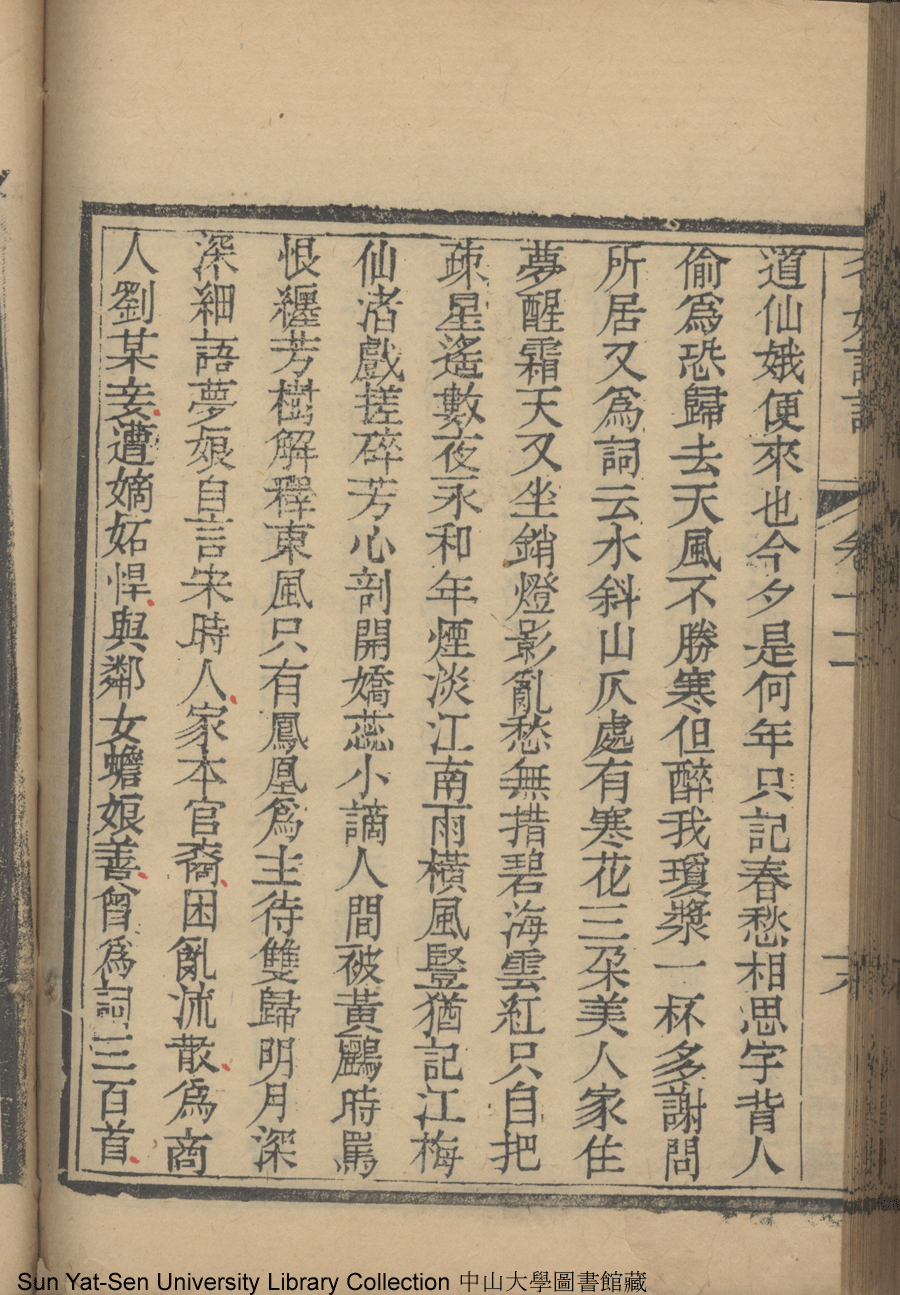 道仙娥便來也今夕是何年只記春愁相思字背人
偷爲恐歸去天風不勝寒但醉我瓊漿一杯多謝問
所居又爲詞云水斜山仄處有寒花三朶美人家住
夢醒霜天又坐銷燈影亂愁無措碧海雲紅只自把
疎星遙數夜永和年煙淡江南雨橫風豎猶記江梅
仙渚戲搓碎芳心剖開嬌蕊小謫人間被黃鸝時罵
恨纏芳樹解釋東風只有鳳凰爲主待雙歸明月深
深細語夢娘自言宋時人家本官裔困亂流散爲商
人劉某妾遭嫡妬悍與鄰女蟾娘善曾爲詞三百首
卷十二
Sun Yat-Sen University Library Collection 中山大學圖書館藏